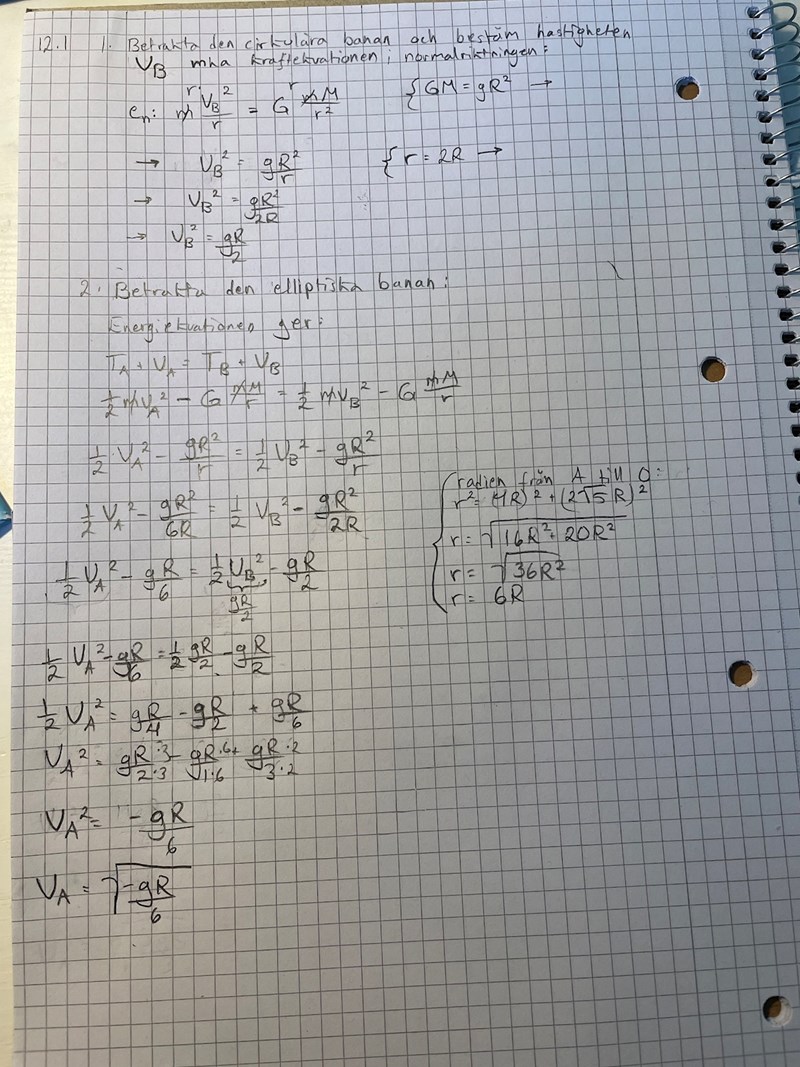 12.1 1. Betrakta den cirkulära banan och bestäm hastigheten
V_B mha kraftekvationen i normalriktningen:
e_n: m V_B²/r = G mM/r² { GM = gR² →
→ V_B² = gR²/r { r = 2R →
→ V_B² = gR²/2R
→ V_B² = gR/2
2. Betrakta den elliptiska banan:
Energiekvationen ger:
T_A + V_A = T_B + V_B
1/2 mV_A² - G mM/r = 1/2 mV_B² - G mM/r
1/2 · V_A² - gR²/r = 1/2 V_B² - gR²/r
1/2 V_A² - gR²/6R = 1/2 V_B² - gR²/2R
1/2 V_A² - gR/6 = 1/2 V_B² - gR/2
gR/2
radien från A till O:
r² = (4R)² + (2√5 R)²
r = √16R² + 20R²
r = √36R²
r = 6R
1/2 V_A² - gR/6 = 1/2 gR/2 - gR/2
1/2 V_A² = gR/4 - gR/2 + gR/6
V_A² = gR·3/2·3 - gR·6/1·6 + gR·2/3·2
V_A² = -gR/6
V_A = √-gR/6